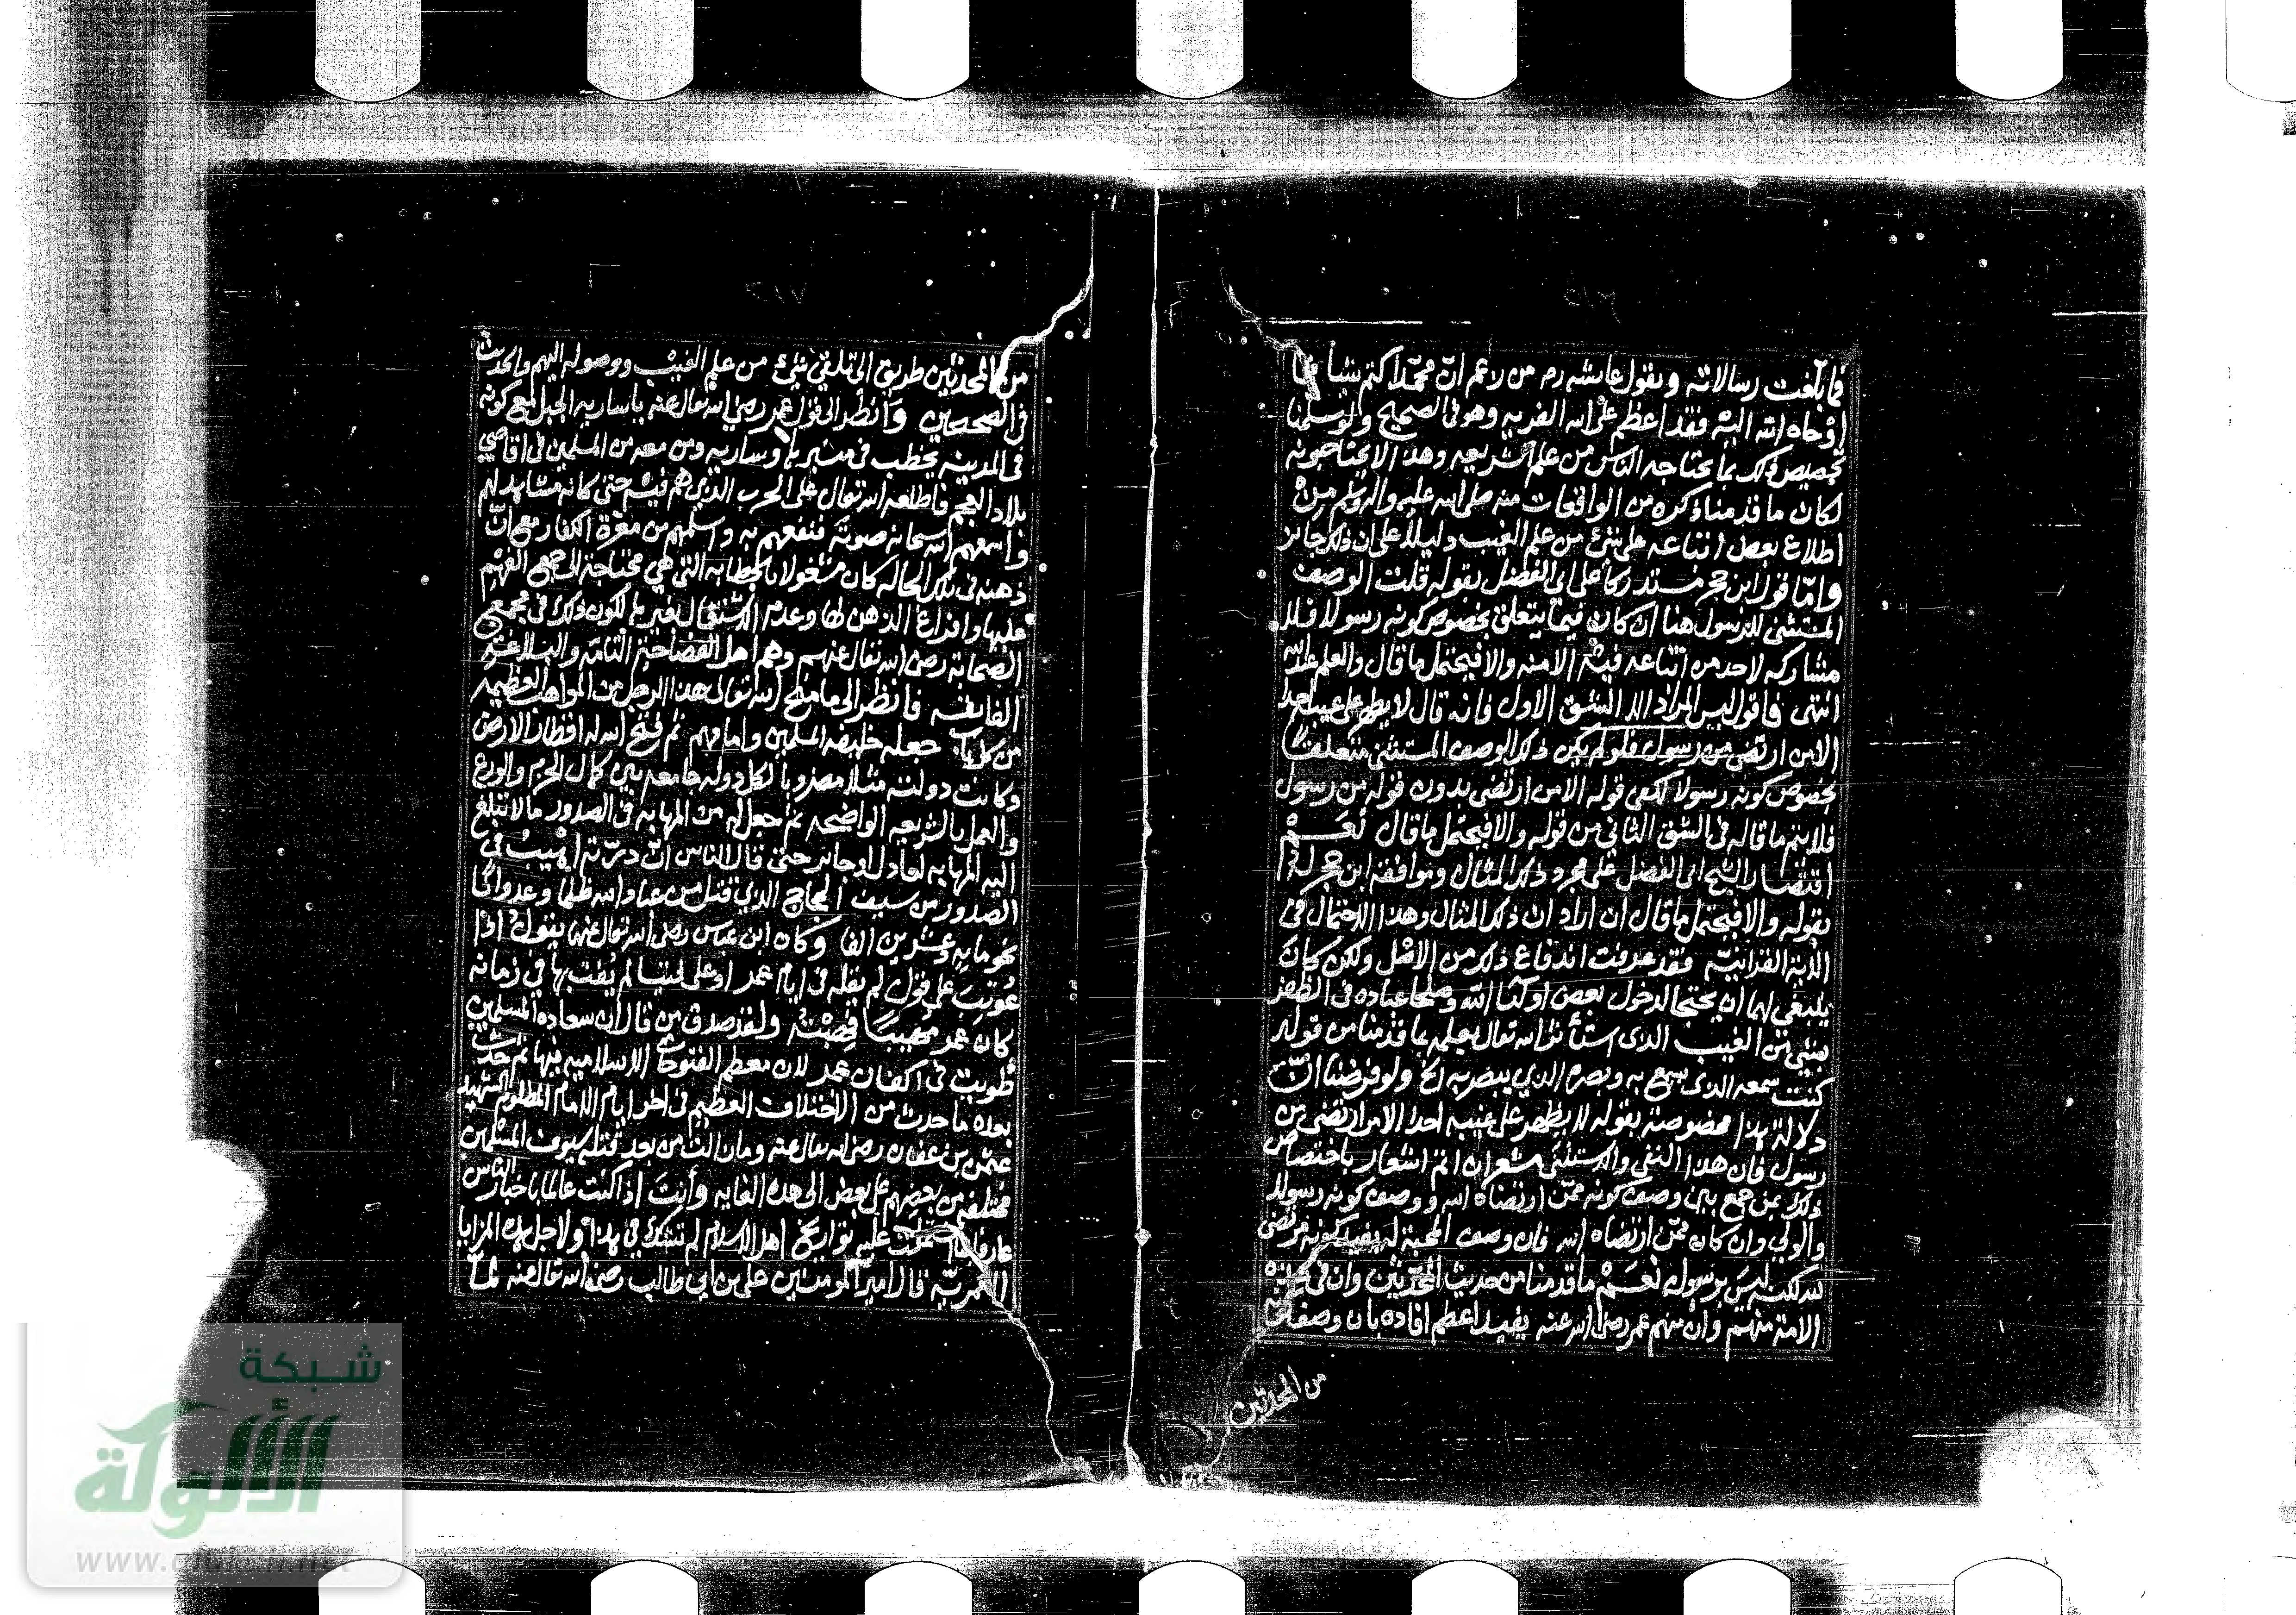 فما بلغت رسالاته وبقول عائشه رض من زعم ان محمدا كتم شيأ مما
اوحاه الله اليه فقد اعظم على الله الفريه وهو فى الصحيح ولو سلمنا
تخصيص ذلك بما يحتاجه الناس من علم الشريعه وهذا لا يحتاجونه
لكان ما قدمنا ذكره من الواقعات منه صلى الله عليه واله وسلم من
اطلاع بعض اتباعه على شئ من علم الغيب دليلا على ان ذلك جائز
واما قول ابن حجر مستدركا على ابى الفضل بقوله قلت الوصف
المستثنى للرسول هنا ان كان فيما يتعلق بخصوص كونه رسولا فلا
مشاركه لاحد من اتباعه فيه الا منه والا فيحتمل ما قال والعلم عند الله
انتهى فاقول ليس المراد الا الشق الاول فانه قال لا يظهر على غيبه احدا
الا من ارتضى من رسول فلو لم يكن ذلك الوصف المستثنى متعلقا
بخصوص كونه رسولا لكفى قوله الا من ارتضى بدون قوله من رسول
فلا يتم ما قاله فى الشق الثانى من قوله والا فيحتمل ما قال نعم
اقتصار الشيخ ابى الفضل على مجرد ذكر المثال وموافقة ابن حجر له
بقوله والا فيحتمل ما قال ان اراد ان ذكر المثال وهذا الاحتمال فى
الاية القرانية فقد عرفت اندفاع ذلك من الاصل ولكن كان
ينبغى لهما ان يحتجا لدخول بعض اوليا الله وصلحا عباده فى الظفر
بشئ من الغيب الذى استأثر الله تعالى بعلمه بما قدمنا من قوله
كنت سمعه الذى يسمع به وبصره الذى يبصر به الخ ولو فرضنا ان
دلالة هذا مخصوصة بقوله لا يظهر على غيبه احدا الا من ارتضى من
رسول فان هذا النفى والاستثنى مشعران اتم اشعار باختصاص
ذلك بمن جمع بين وصف كونه ممن ارتضاه الله ووصف كونه رسولا
والولى وان كان ممن ارتضاه الله فان وصف المحبة له يفيد كونه مرتضى
لكنه ليس برسول نعم ما قدمنا من حديث المحدثين وان فى هذه
الامة منهم وأن منهم عمر رضى الله عنه يفيد اعظم افاده بان وصف
من المحدثين
من المحدثين طريق الى تلقى شئ من علم الغيب ووصوله اليهم والحديث
فى الصحيحين وانظر الى قول عمر رضى الله تعالى عنه يا ساريه الجبل مع كونه
فى المدينه يخطب فى منبرها وساريه ومن معه من المسلمين فى اقاصى
بلاد العجم فاطلعه الله تعالى على الحرب الذى هم فيه حتى كانه مشاهد لهم
واسمعهم الله سبحانه صوته فنفعهم به وسلمهم من معرة الكفار مع ان
ذهنه فى تلك الحاله كان مشغولا بالخطابه التى هى محتاجة الى جمع الفهم
عليها وافراغ الذهن لها وعدم الاشتغال بغيرها لكون ذلك فى مجمع
الصحابة رضى الله تعالى عنهم وهم اهل الفصاحة التامه والبلاغة
الفايقه فانظر الى ما منح الله تعالى هذا الرجل من المواهب العظيمه
جعله خليفه المسلمين وامامهم ثم فتح الله له اقطار الارض
وكانت دولته مثلا مضروبا لكل دوله جامعه بين كمال الحزم والورع
والعمل بالشريعه الواضحه ثم جعل له من المهابه فى الصدور ما لا تبلغ
اليه المهابه لعادل او جائر حتى قال الناس ان درته اهيب فى
الصدور من سيف الحجاج الذى قتل من عباد الله ظلما وعدوانا
نحو مايه وعشرين الفا وكان ابن عباس رضى الله تعالى عنهما يقول اذا
عوتب على قول لم يقله فى ايام عمر او على فتيا لم يفت بها فى زمانه
كان عمر مهيبا فهبته ولقد صدق من قال ان سعاده المسلمين
طويت فى اكفان عمر لان معظم الفتوحات الاسلاميه فيها ثم حدث
بعده ما حدث من الاختلاف العظيم فى اخر ايام الامام المظلوم الشهيد
عثمن بن عفان رضى الله تعالى عنه وما زالت من بعد قتله سيوف المسلمين
مختلفة من بعضهم على بعض الى هذه الغايه وأنت اذا كنت عالما باخبار الناس
عارفا بما اشتملت عليه تواريخ اهل الاسلام لم تشك فى هذا ولاجل هذه المزايا
العمريّه قال امير المومنين على بن ابى طالب رضى الله تعالى عنه لما
شبكة
الألوكة